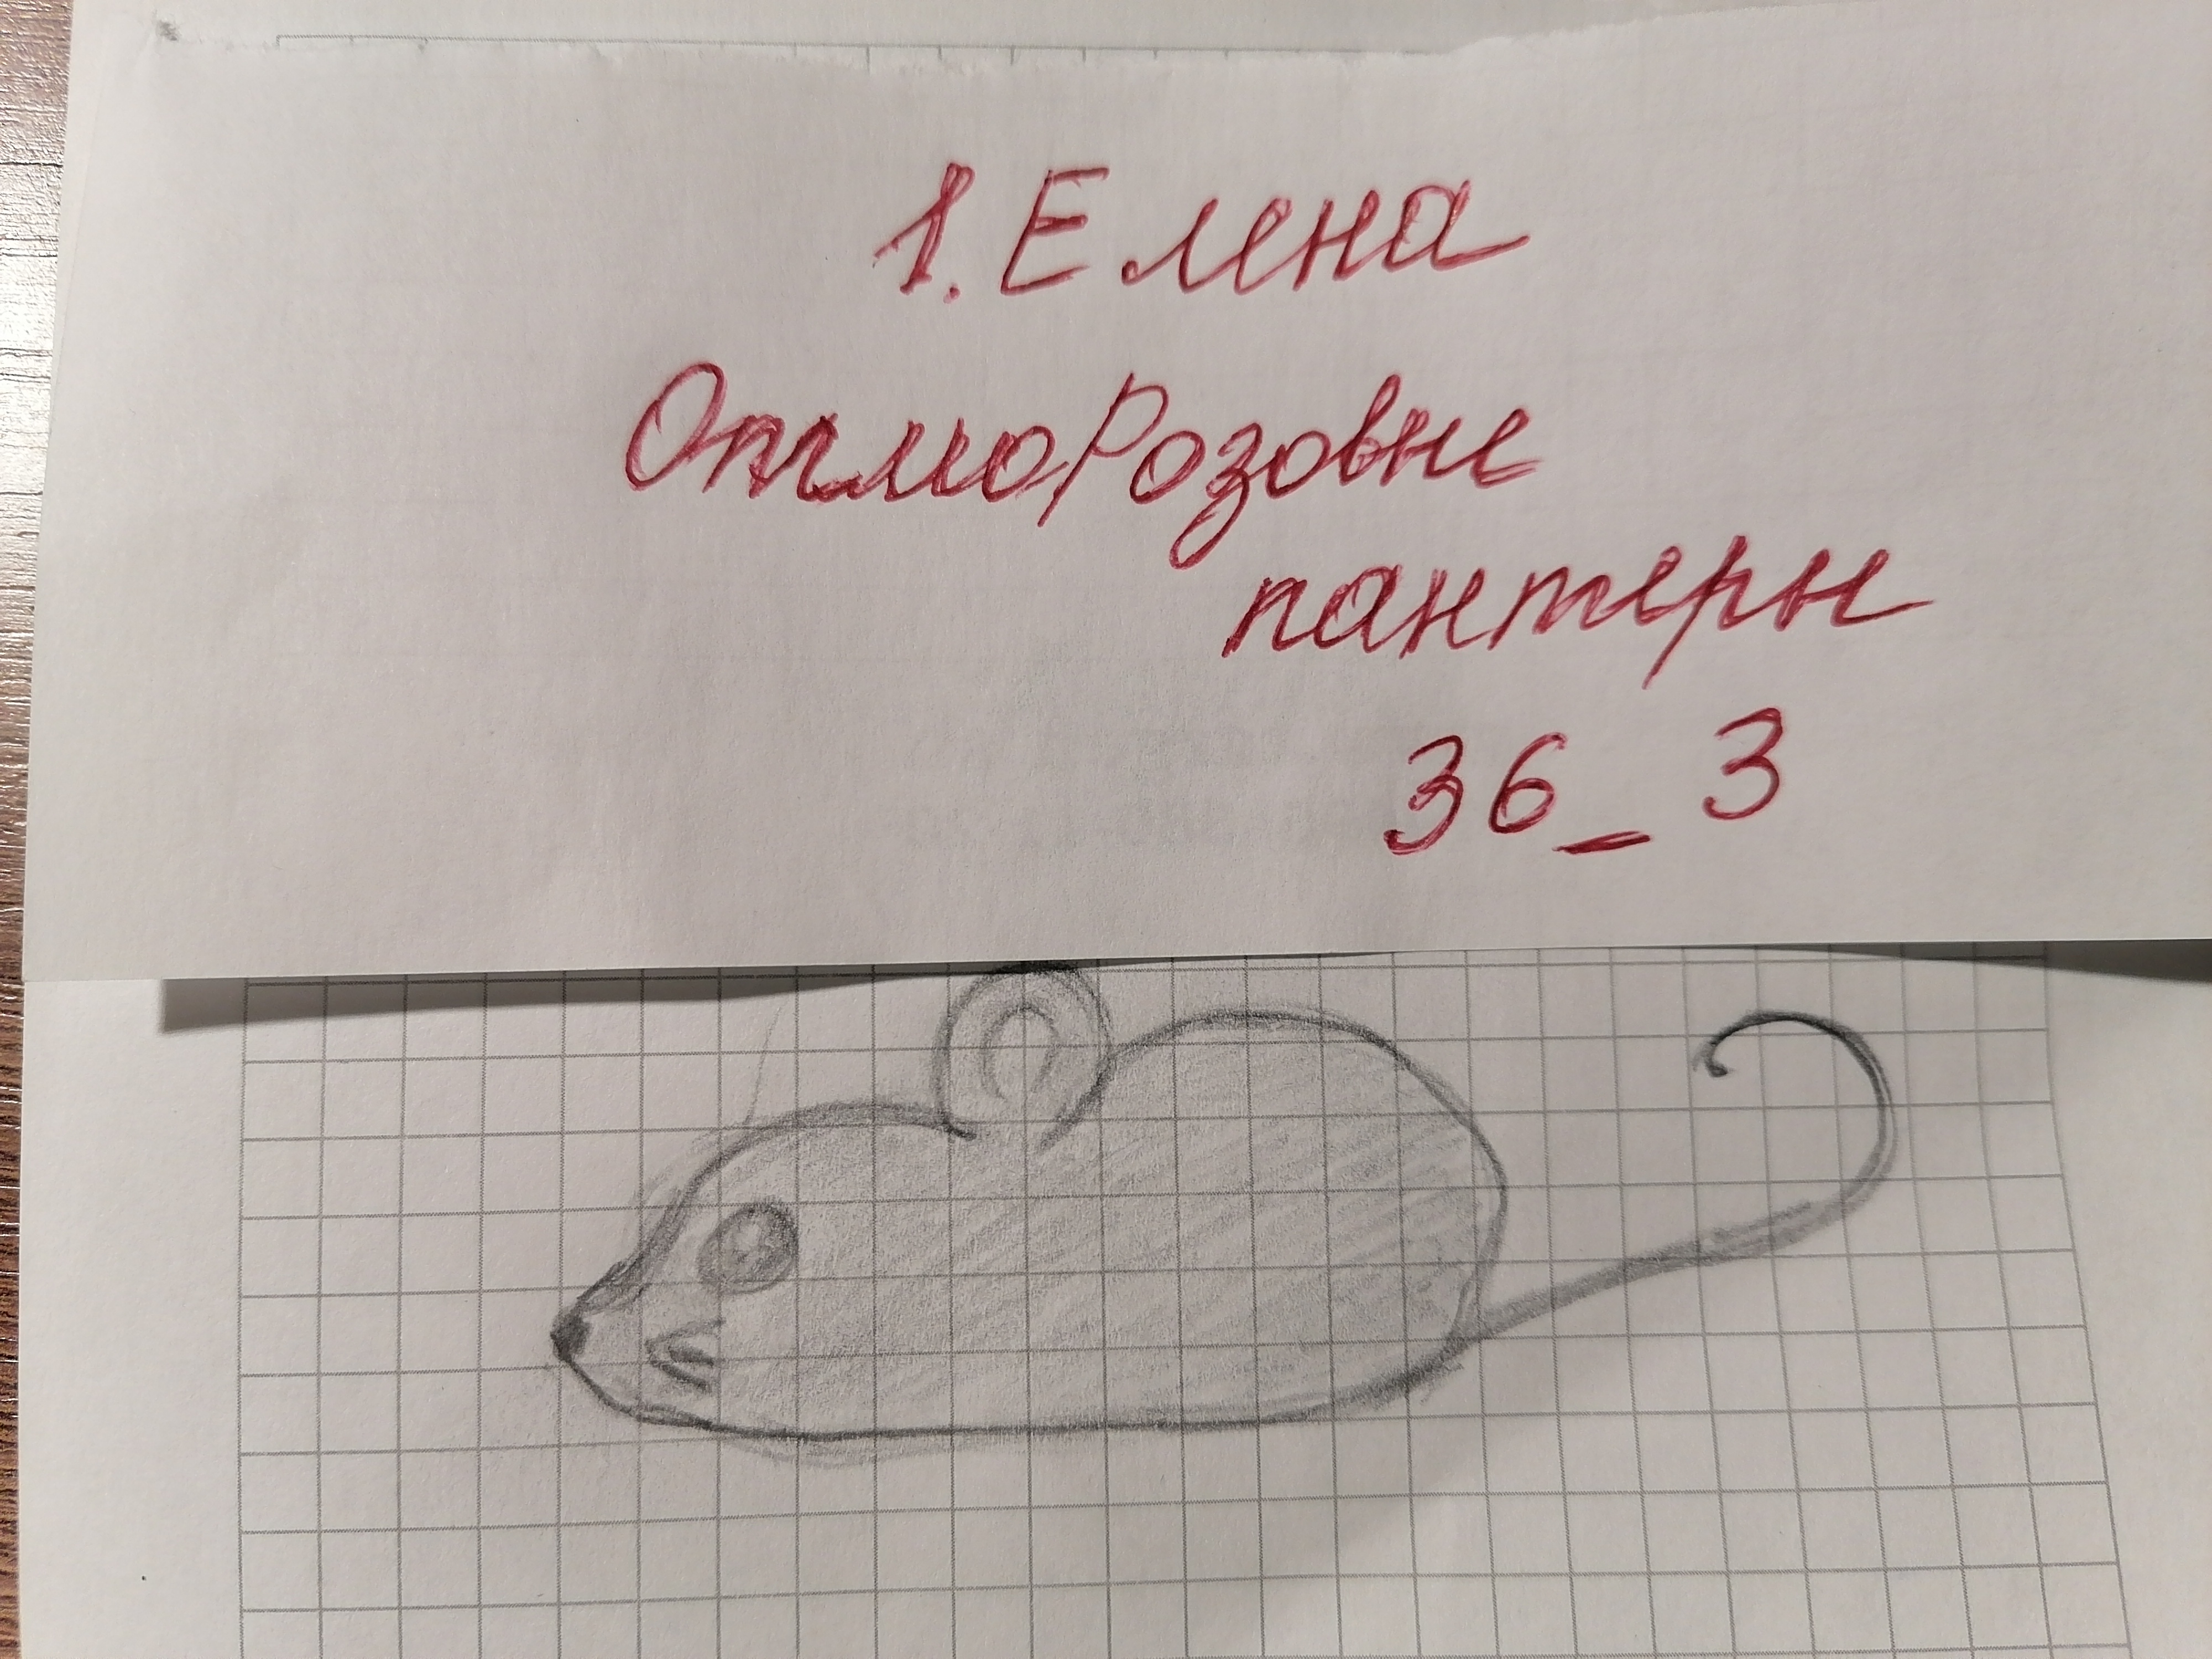 1. Елена
ОтмоРозовые
пантеры
36_3